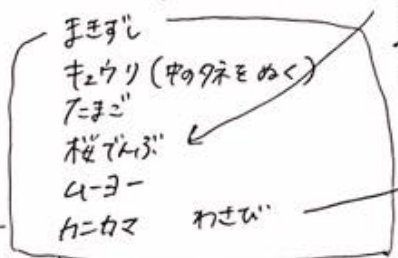 まきずし
キュウリ(中のタネをぬく)
たまご
桜でんぶ
ムーヨー
カニカマ わさび